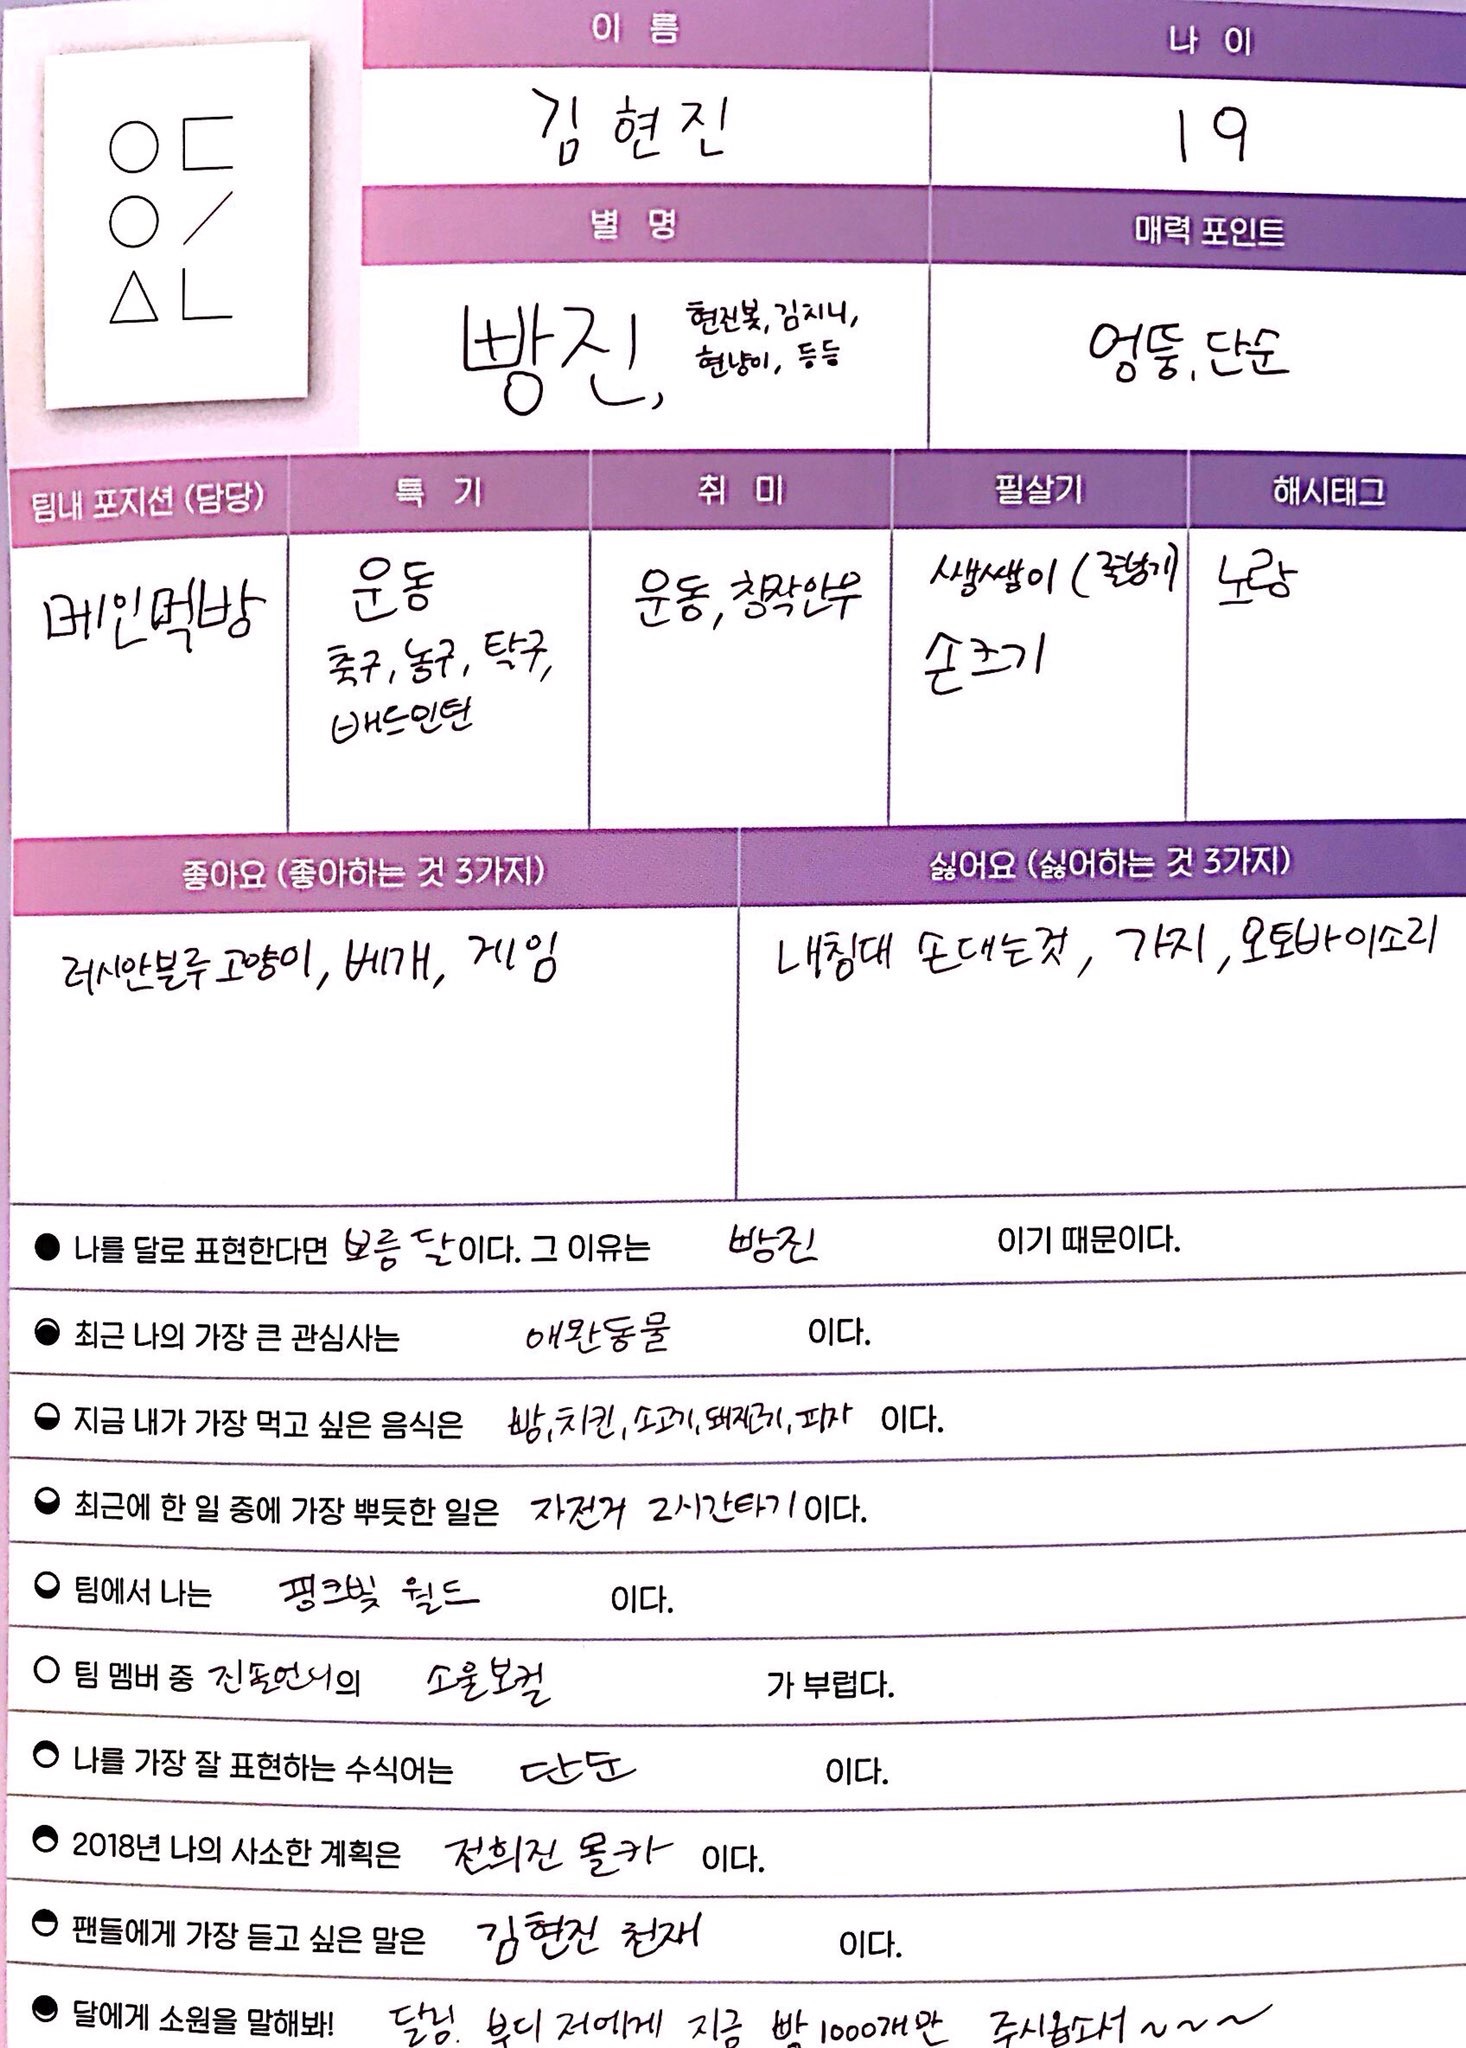 이 름
나 이
김현진
19
별 명
매력 포인트
빵진, 현진봇, 김지니,
현냥이, 등등
엉뚱, 단순
팀내 포지션 (담당)
특 기
취 미
필살기
해시태그
메인먹방
운동
축구, 농구, 탁구,
배드민턴
운동, 창작안무
쌩쌩이 (줄넘기)
손크기
노랑
좋아요 (좋아하는 것 3가지)
싫어요 (싫어하는 것 3가지)
러시안블루고양이, 베개, 게임
내침대 손대는것, 가지, 오토바이소리
나를 달로 표현한다면 보름달이다. 그 이유는 빵진 이기 때문이다.
최근 나의 가장 큰 관심사는 애완동물 이다.
지금 내가 가장 먹고 싶은 음식은 빵, 치킨, 소고기, 돼지고기, 피자 이다.
최근에 한 일 중에 가장 뿌듯한 일은 자전거 2시간타기 이다.
팀에서 나는 핑크빛 월드 이다.
팀 멤버 중 진솔언니의 소울보컬 가 부럽다.
나를 가장 잘 표현하는 수식어는 단순 이다.
2018년 나의 사소한 계획은 전희진 몰카 이다.
팬들에게 가장 듣고 싶은 말은 김현진 천재 이다.
달에게 소원을 말해봐! 달님. 부디 저에게 지금 빵 1000개만 주시옵소서~~~